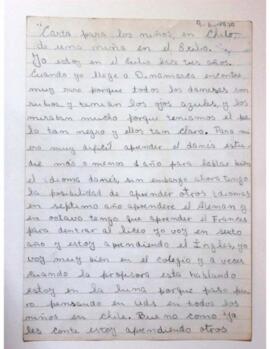 "Carta para los niños, en Chile,
de una niña en el Exilio."
Yo estoy en el Exilio hace tres años.
Cuando yo llegue a Dinamarca encontre
muy raro porque todos los daneses son
rubios y tenian los ojos azules, y los
miraban mucho porque teniamos el pe
lo tan negro y ellos tan claro. Para mi
era muy dificil aprender el danés estu
die mas o menos 1 año para hablar bien
el idioma danés, sin embargo ahora tengo
la posibilidad de aprender otros idiomas
en septimo año aprendere el Aleman y
en octavo tengo que aprender el Frances
para dentrar al liceo yo voy en sexto
año y estoy aprendiendo el Ingles, yo
voy muy bien en el colegio y a veces
cuando la profesora esta hablando
estoy en la luna porque paso puro
pensando en uds en todos los
niños en Chile. Bueno como ya
les conte estoy aprendiendo otros